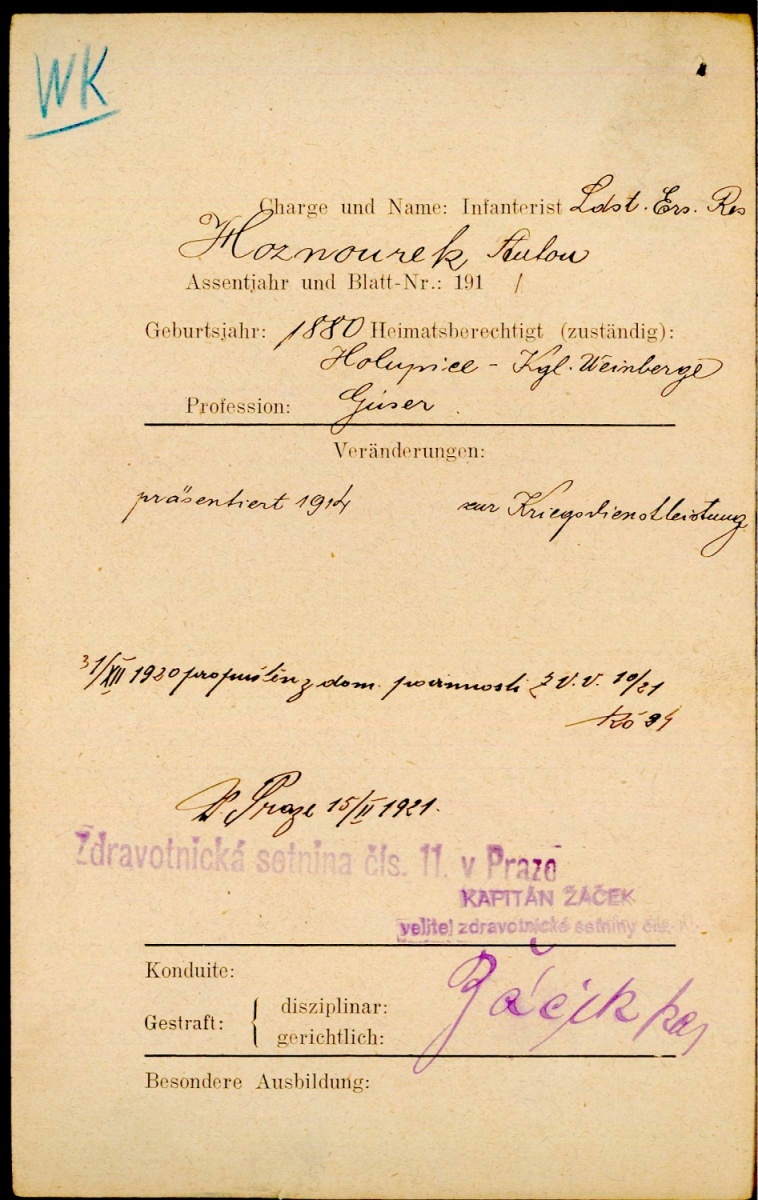 WK
Charge und Name: Infanterist Ldst. Ers. Res
Hoznourek Anton
Assentjahr und Blatt-Nr.: 191 /
Geburtsjahr: 1880 Heimatsberechtigt (zuständig):
Holupice - Kgl. Weinberge
Profession: Giser
Veränderungen:
präsentiert 1914 zur Kriegsdienstleistung
31/XII 1920 propuštěn z dom. povinnosti z V. V. 10/21
V Praze 15/II 1921.
Zdravotnická setnina čís. 11. v Praze
KAPITÁN ŽÁČEK
velitel zdravotnické setniny čís.
Konduite:
Gestraft: { disziplinar:
gerichtlich:
Žáček kap
Besondere Ausbildung: